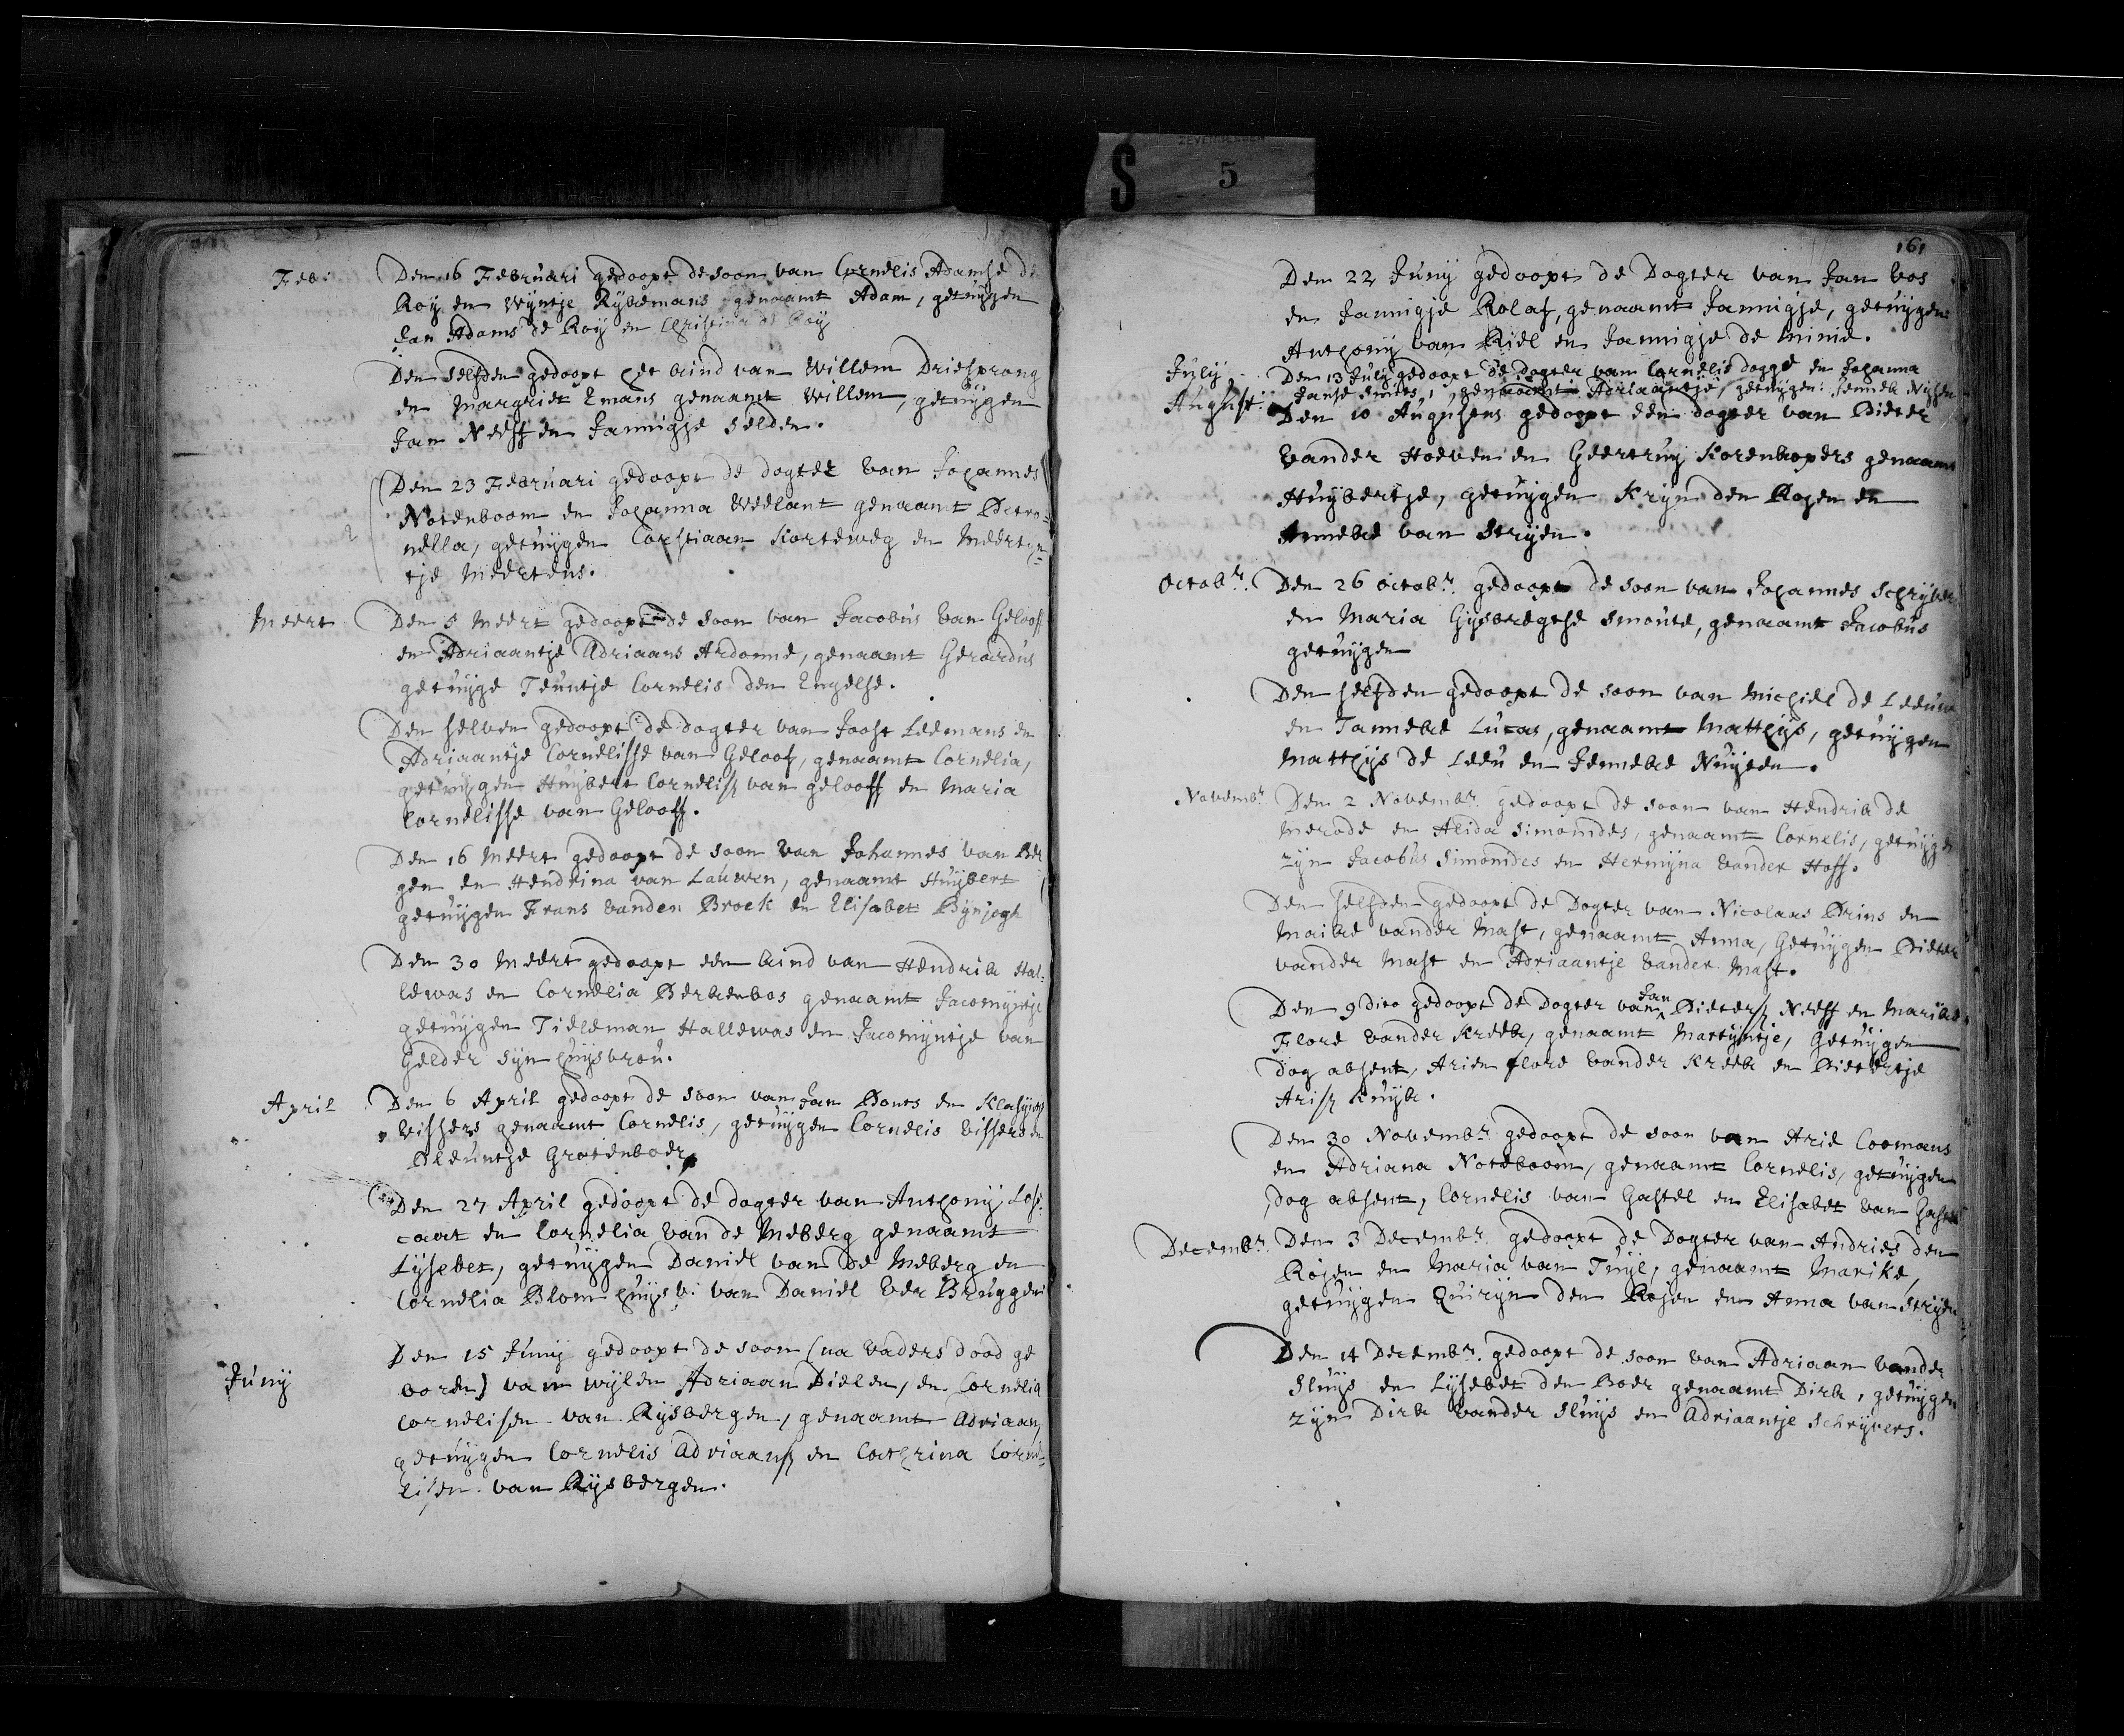 ZEVENBERGEN
S 5
Feb: Den 16 Februari gedoopt de soon van Cornelis Adamse de
Roy en Wyntje Rykemans genaamt Adam, getuygen
Jan Adams de Roy en Christina de Roy
Den selfden gedoopt het kind van Willem Driesprong
en Margriet Emans genaamt Willem, getuygen
Jan Neeff en Jannigje Selden.
Den 23 Februari gedoopt de dogter van Johannes
Notenboom en Johanna Weelant genaamt Petro=
nella, getuygen Corstiaan Korteweg en Meertyn=
tje Meertens.
Meert Den 5 Meert gedoopt de soon van Jacobus van Gelooff
en Adriaantje Adriaans Ardonne, genaamt Gerardus
getuyge Teuntje Cornelis den Engelse.
Den selven gedoopt de dogter van Joost Leemans en
Adriaantje Cornelisse van Geloof, genaamt Cornelia,
getuygen Huybert Cornelisz van gelooff en Maria
Cornelisse van Gelooff.
Den 16 Meert gedoopt de soon van Johannes van Ber
gen en Hendrina van Lauwen, genaamt Huybert
getuygen Frans vanden Broek en Elisabet
Den 30 Meert gedoopt een kind van Hendrik Hal=
lewas en Cornelia Berkenbos genaamt Jacomyntje
getuygen Tieleman Hallewas en Jacomyntje van
Gelder syn huysvrou.
April Den 6 April gedoopt de soon van Jan Bouts en Klasyna
Vissers genaamt Cornelis, getuygen Cornelis Vissers en
Pleuntje Grotenboer
Den 27 April gedoopt de dogter van Anthony Lose=
caat en Cornelia van de Meberg genaamt
Lysebet, getuygen Daniel van de Meberg en
Cornelia Blom huysv: van Daniel Ver Bruggen
Juny Den 15 Juny gedoopt de soon (na vaders dood ge
boren) van wylen Adriaan Dielen, en Cornelia
Cornelisen van Rysbergen, genaamt Adriaan,
getuygen Cornelis Adriaansz en Cathrina Corne=
lisen van Rysbergen.
161
Den 22 Juny gedoopt de Dogter van Jan Vos
en Jannigje Rolaf, genaamt Jannigje, getuygen
Anthony van Riel en Jannigje de Minie.
July Den 13 July gedoopt de dogter van Cornelis dogge en Johanna
Janse Smits, genaamt Adriaantje, getuygen: Jenneke
August: Den 10 Augustus gedoopt een dogter van Pieter
vander Hoeven en Geertruy Korenkopers genaamt
Huybertje, getuygen Kryn den Rosen en
Anneke van Stryen.
Octobr. Den 26 Octobr. gedoopt de soon van Johannes Schryver
en Maria Gysbregtse Smouse, genaamt Jacobus
getuygen
Den selfden gedoopt de soon van Michiel de Leeuw
en Tanneke Lucas, genaamt Matthys, getuygen
Matthys de Leeu en Jenneke Nuyten.
Novembr. Den 2 Novembr. gedoopt de soon van Hendrik de
Merode en Alida Simonides, genaamt Cornelis, getuygen
zyn Jacobus Simonides en Hermyna vander Hoff.
Den selfden gedoopt de Dogter van Nicolaas Prins en
Maike vander Mast, genaamt Anna, Getuygen Pieter
vander Mast en Adriaantje vander Mast.
Den 9 dito gedoopt de Dogter van Jan Pietersz Neeff en Marike
Flore vander Kreek, genaamt Martyntje, Getuygen
dog absent, Arien flore vander Kreek en Pietertje
Arisz Kruyk.
Den 30 Novembr. gedoopt de soon van Arie Coomans
en Adriana Noteboom, genaamt Cornelis, getuygen
dog absent, Cornelis van Gastel en Elisabet van Gastel
Decembr. Den 3 Decembr. gedoopt de Dogter van Andries den
Rosen en Maria van Tuyl, genaamt Marike,
getuygen Quiryn den Rosen en Anna van Stryen
Den 14 Decembr. gedoopt de soon van Adriaan vander
Sluys en Lysebet den Boer genaamt Dirk, getuygen
zyn Dirk vander Sluys en Adriaantje Schryvers.